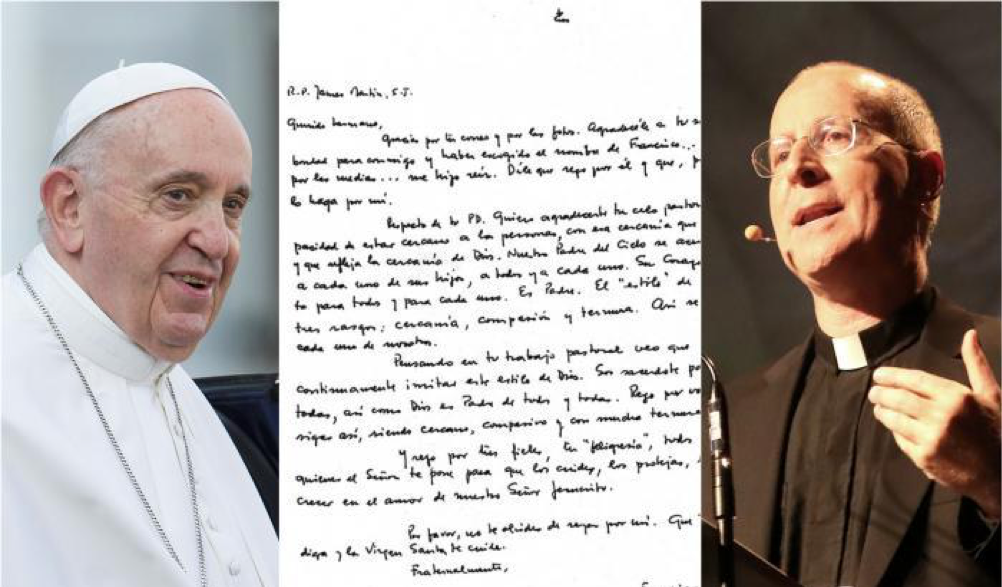 R.P. James Martin, S.J.
Querido hermano,
Gracias por tu correo y por las fotos. Agradecele a tu
bondad para conmigo y haber escogido el nombre de Francisco...
por las medias... me hizo reir. Dile que rezo por él y que,
lo haga por mí.
Respecto de tu P.D. Quiero agradecerte tu celo
estar cercano a las personas, con esa cercanía que
y que refleja la cercanía de Dios. Nuestro Padre del Cielo se
a cada uno de sus hijos, a todos y a cada uno. Su
to para todos y para cada uno. Es Padre. El "estilo" de
tres rasgos: cercanía, compasión y ternura. Así se
cada uno de nosotros.
Pensando en tu trabajo pastoral veo que
continuamente imitar este estilo de Dios. Sos sacerdote
todas, así como Dios es Padre de todos y todas. Rezo por
sigas así, siendo cercano, compasivo y con mucha ternura
Y rezo por tus fieles, tu "feligresía", todos
quienes el Señor te pone para que los cuides, los protejas,
crecer en el amor de nuestro Señor Jesucristo.
Por favor, no te olvides de rezar por mí. Que
diga y la Virgen Santa te cuide.
Fraternalmente,